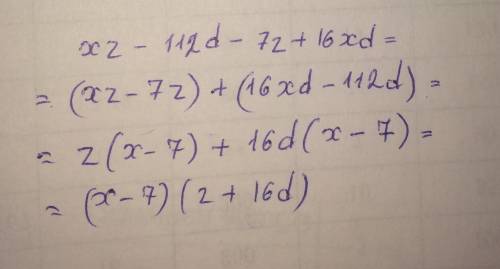 xz - 112d - 7z + 16xd =
= (xz - 7z) + (16xd - 112d) =
= z(x - 7) + 16d(x - 7) =
= (x - 7)(z + 16d)